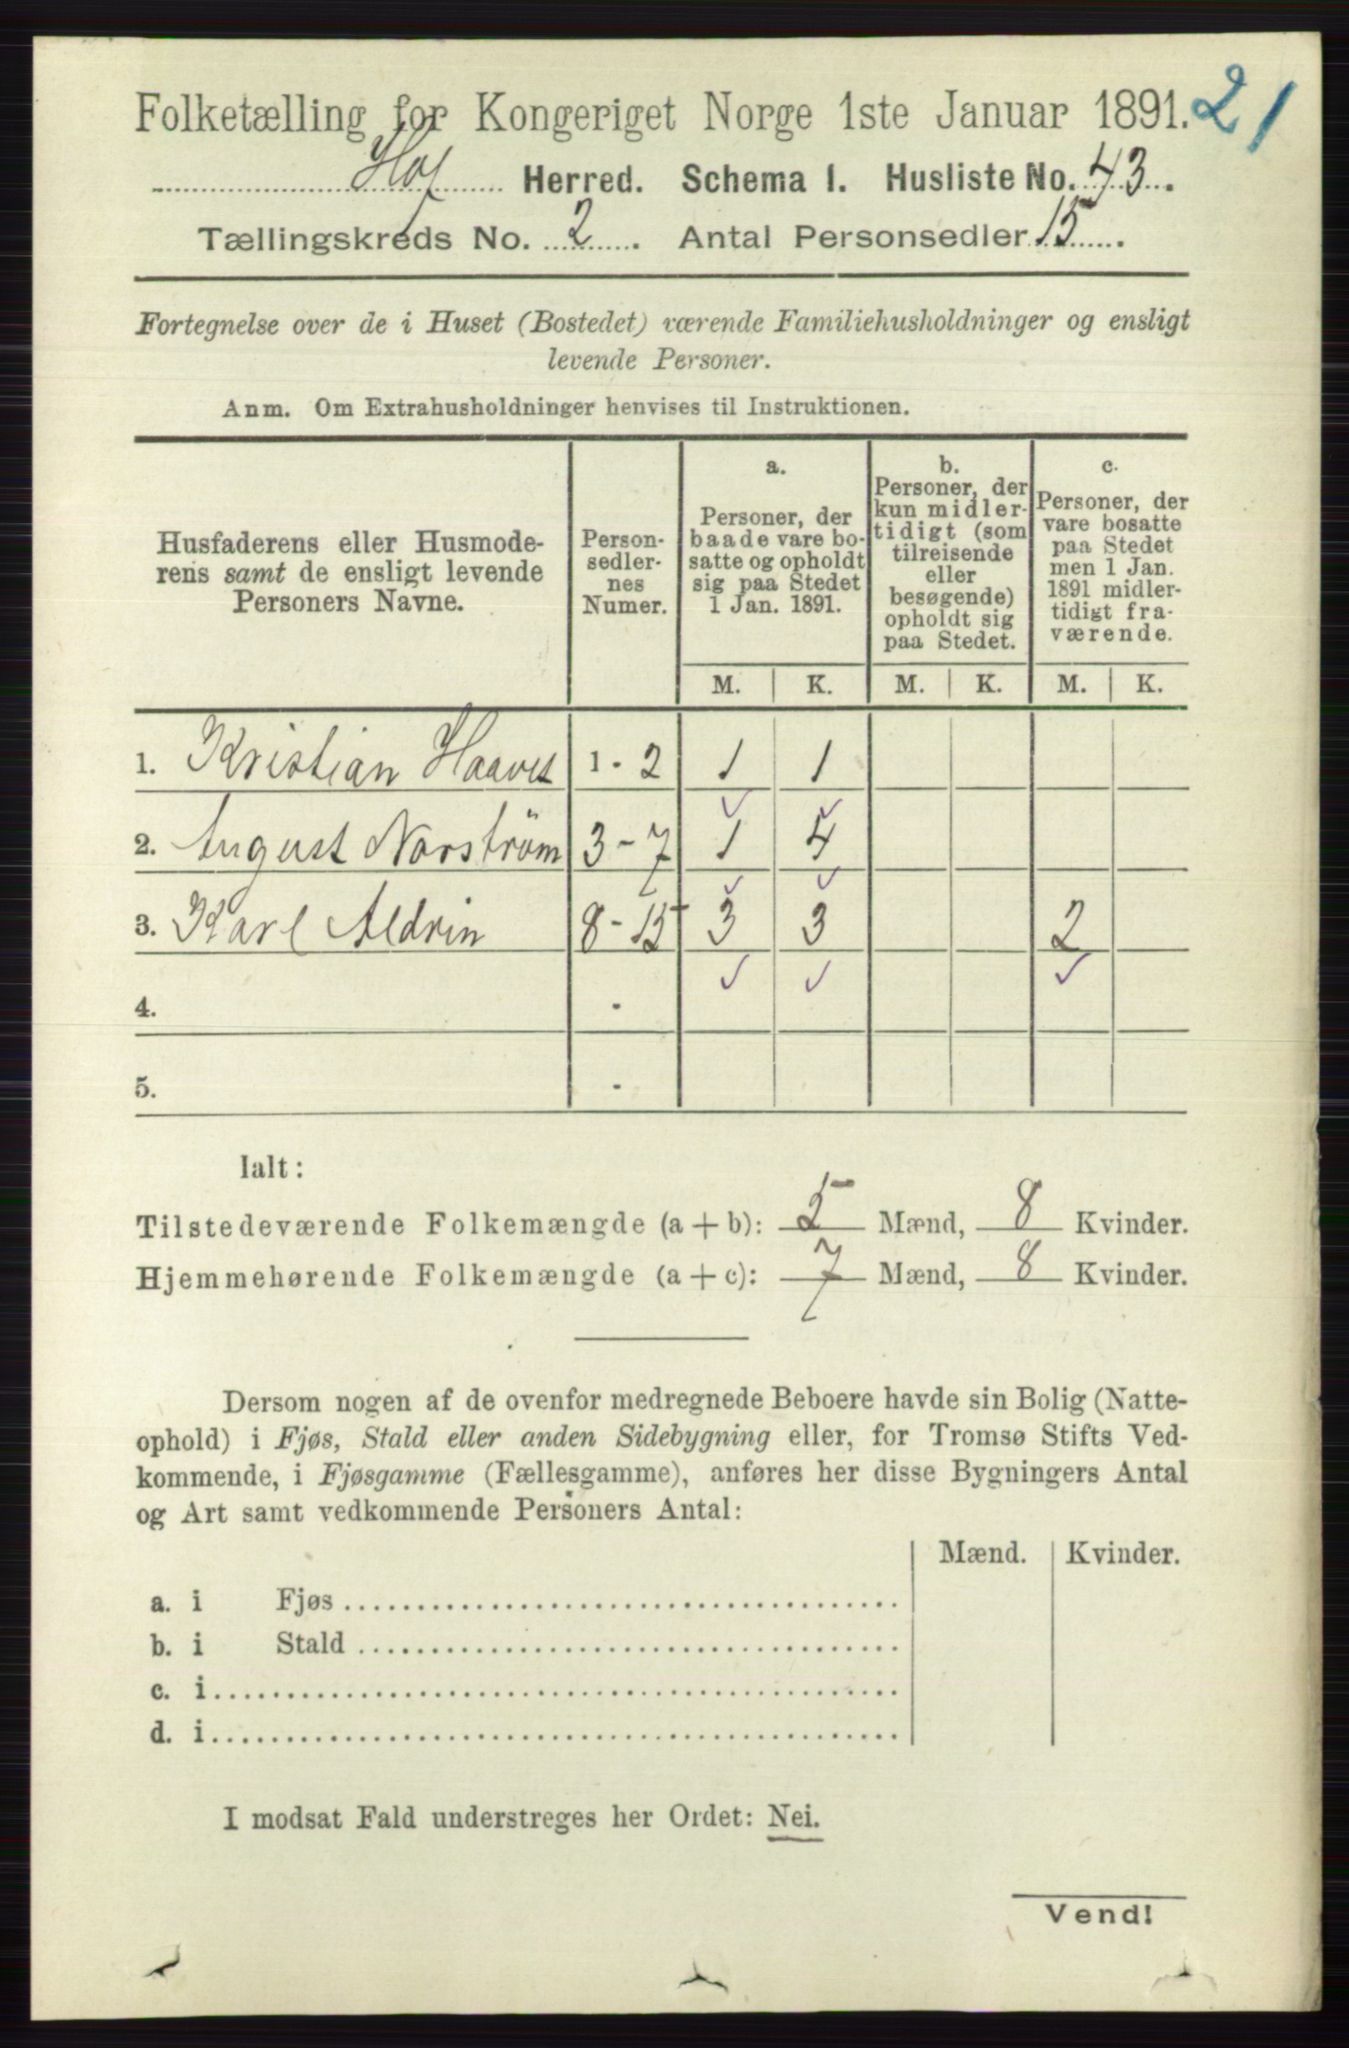 Folketælling for Kongeriget Norge 1ste Januar 1891. 21
Hof Herred. Schema 1. Husliste No. 43.
Tællingskreds No. 2. Antal Personsedler 15.
Fortegnelse over de i Huset (Bostedet) værende Familiehusholdninger og ensligt
levende Personer.
Anm. Om Extrahusholdninger henvises til Instruktionen.
Husfaderens eller Husmode-
rens samt de ensligt levende
Personers Navne.
Person-
sedler-
nes
Numer.
a.
Personer, der
baade vare bo-
satte og opholdt
sig paa Stedet
1 Jan. 1891.
b.
Personer, der
kun midler-
tidigt (som
tilreisende
eller
besøgende)
opholdt sig
paa Stedet.
c.
Personer, der
vare bosatte
paa Stedet
men 1 Jan.
1891 midler-
tidigt fra-
værende.
M. K. M. K. M. K.
1. Kristian 1 - 2 1 1
2. August Norström 3 - 7 1 4
3. Karl Aldrin 8 - 15 3 3 2
4. -
5. -
Ialt:
Tilstedeværende Folkemængde (a + b): 5 Mænd, 8 Kvinder.
Hjemmehørende Folkemængde (a + c): 7 Mænd, 8 Kvinder.
Dersom nogen af de ovenfor medregnede Beboere havde sin Bolig (Natte-
ophold) i Fjøs, Stald eller anden Sidebygning eller, for Tromsø Stifts Ved-
kommende, i Fjøsgamme (Fællesgamme), anføres her disse Bygningers Antal
og Art samt vedkommende Personers Antal:
Mænd. Kvinder.
a. i Fjøs
b. i Stald
c. i
d. i
I modsat Fald understreges her Ordet: Nei.
Vend!